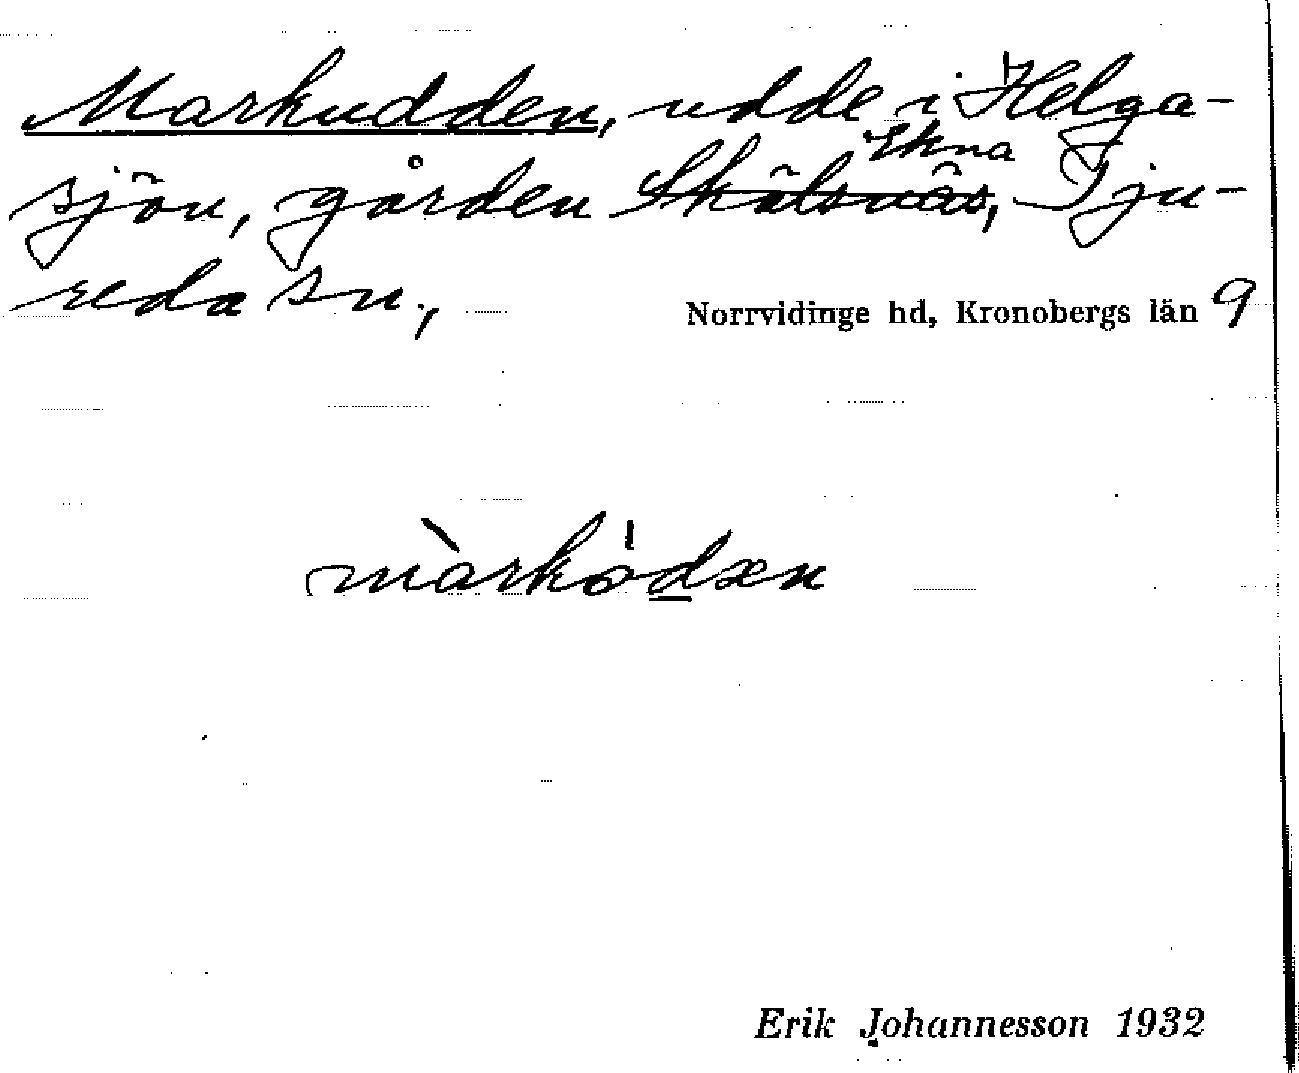 Markudden, udde i Helga-
Ekna
sjön, gården Skälsnäs, Tju-
reda sn,
Norrvidinge hd, Kronobergs län 9
màrkòdæn
Erik Johannesson 1932